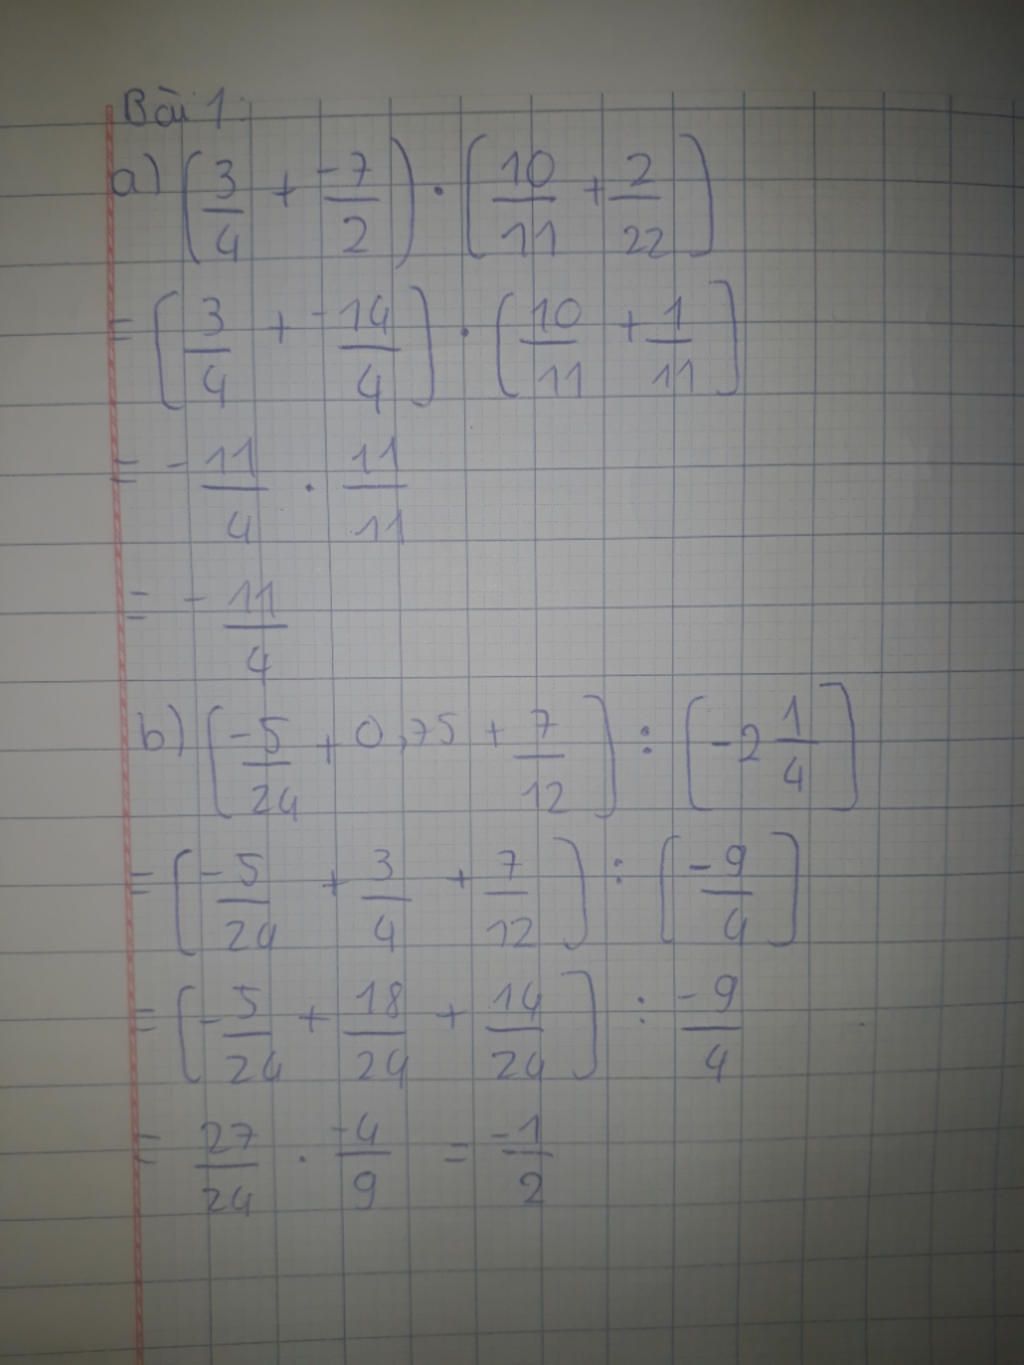 Bài 1:
a) (3/4 + -7/2) · (10/11 + 2/22)
= (3/4 + -14/4) · (10/11 + 1/11)
= - 11/4 · 11/11
= - 11/4
b) (-5/24 + 0,75 + 7/12) : (-2 1/4)
= (-5/24 + 3/4 + 7/12) : (-9/4)
= (-5/24 + 18/24 + 14/24) : -9/4
= 27/24 · -4/9 = -1/2